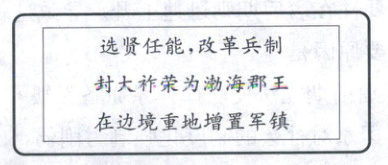 选贤任能，改革兵制
封大祚荣为渤海郡王
在边境重地增置军镇